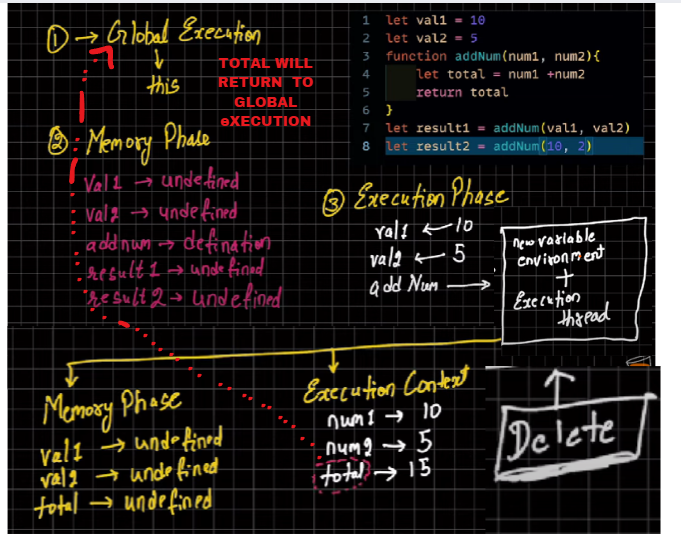 ① → Global Execution
↓
this
TOTAL WILL
RETURN TO
GLOBAL
eXECUTION
1 let val1 = 10
2 let val2 = 5
3 function addNum(num1, num2){
4 let total = num1 +num2
5 return total
6 }
7 let result1 = addNum(val1, val2)
8 let result2 = addNum(10, 2)
② Memory Phase
val1 → undefined
val2 → undefined
addnum → defination
result1 → undefined
result2 → undefined
③ Execution Phase
val1 ← 10
val2 ← 5
add Num →
new variable
environment
+
Execution
thread
Memory Phase
val1 → undefined
val2 → undefined
total → undefined
Execution Context
num1 → 10
num2 → 5
total → 15
Delete